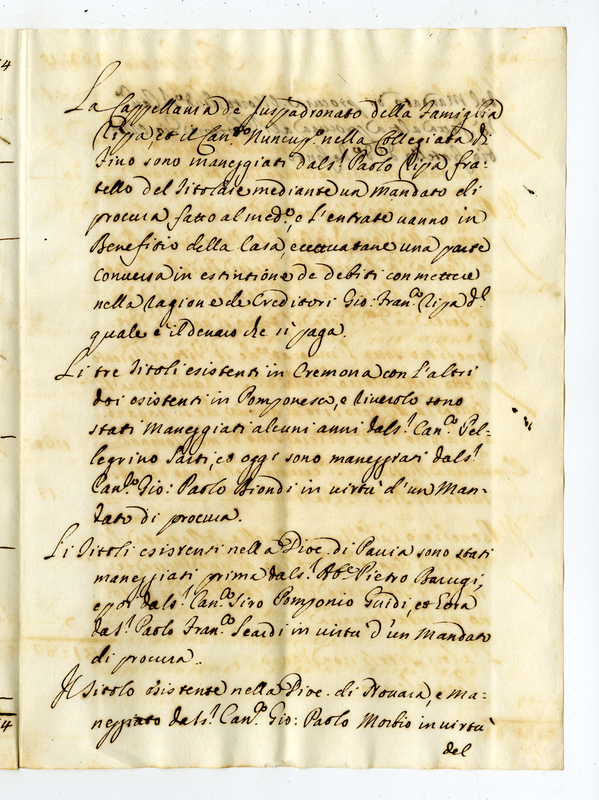 La Cappellania de Juspadronato della Famiglia
Ripa, et il Can.to Nuncup.o nella Collegiata di
Fino sono maneggiati dal s.r Paolo Ripa fra-
tello del Titolare mediante un Mandato di
procura fatto al med.o, e l'entrate vanno in
Benefitio della Casa, eccettuatane una parte
conversa in estintione de debiti con mettere
nella ragione de Creditori Gio: Fran.co Ripa d.l
quale è il denaro che si paga.
Li tre Titoli esistenti in Cremona con l'altri
doi esistenti in Pomponesco, e sono
stati Maneggiati alcuni anni dal s.r Can.co Pel-
legrino Sarti, et oggi sono maneggiati dal s.r
Can.co Gio: Paolo Biondi in virtù d'un Man-
dato di procura.
Li Titoli esistenti nella Dioc. di Pavia sono stati
maneggiati prima dal s.r Ab.e Pietro Barugi,
e poi dal s.r Can.co Siro Pomponio Guidi, et hora
dal s.r Paolo Fran.co in virtù d'un Mandato
di procura.
Il Titolo esistente nella Dioc. di Novara, e ma-
neggiato dal s.r Can.co Gio: Paolo Morbio in virtù
del